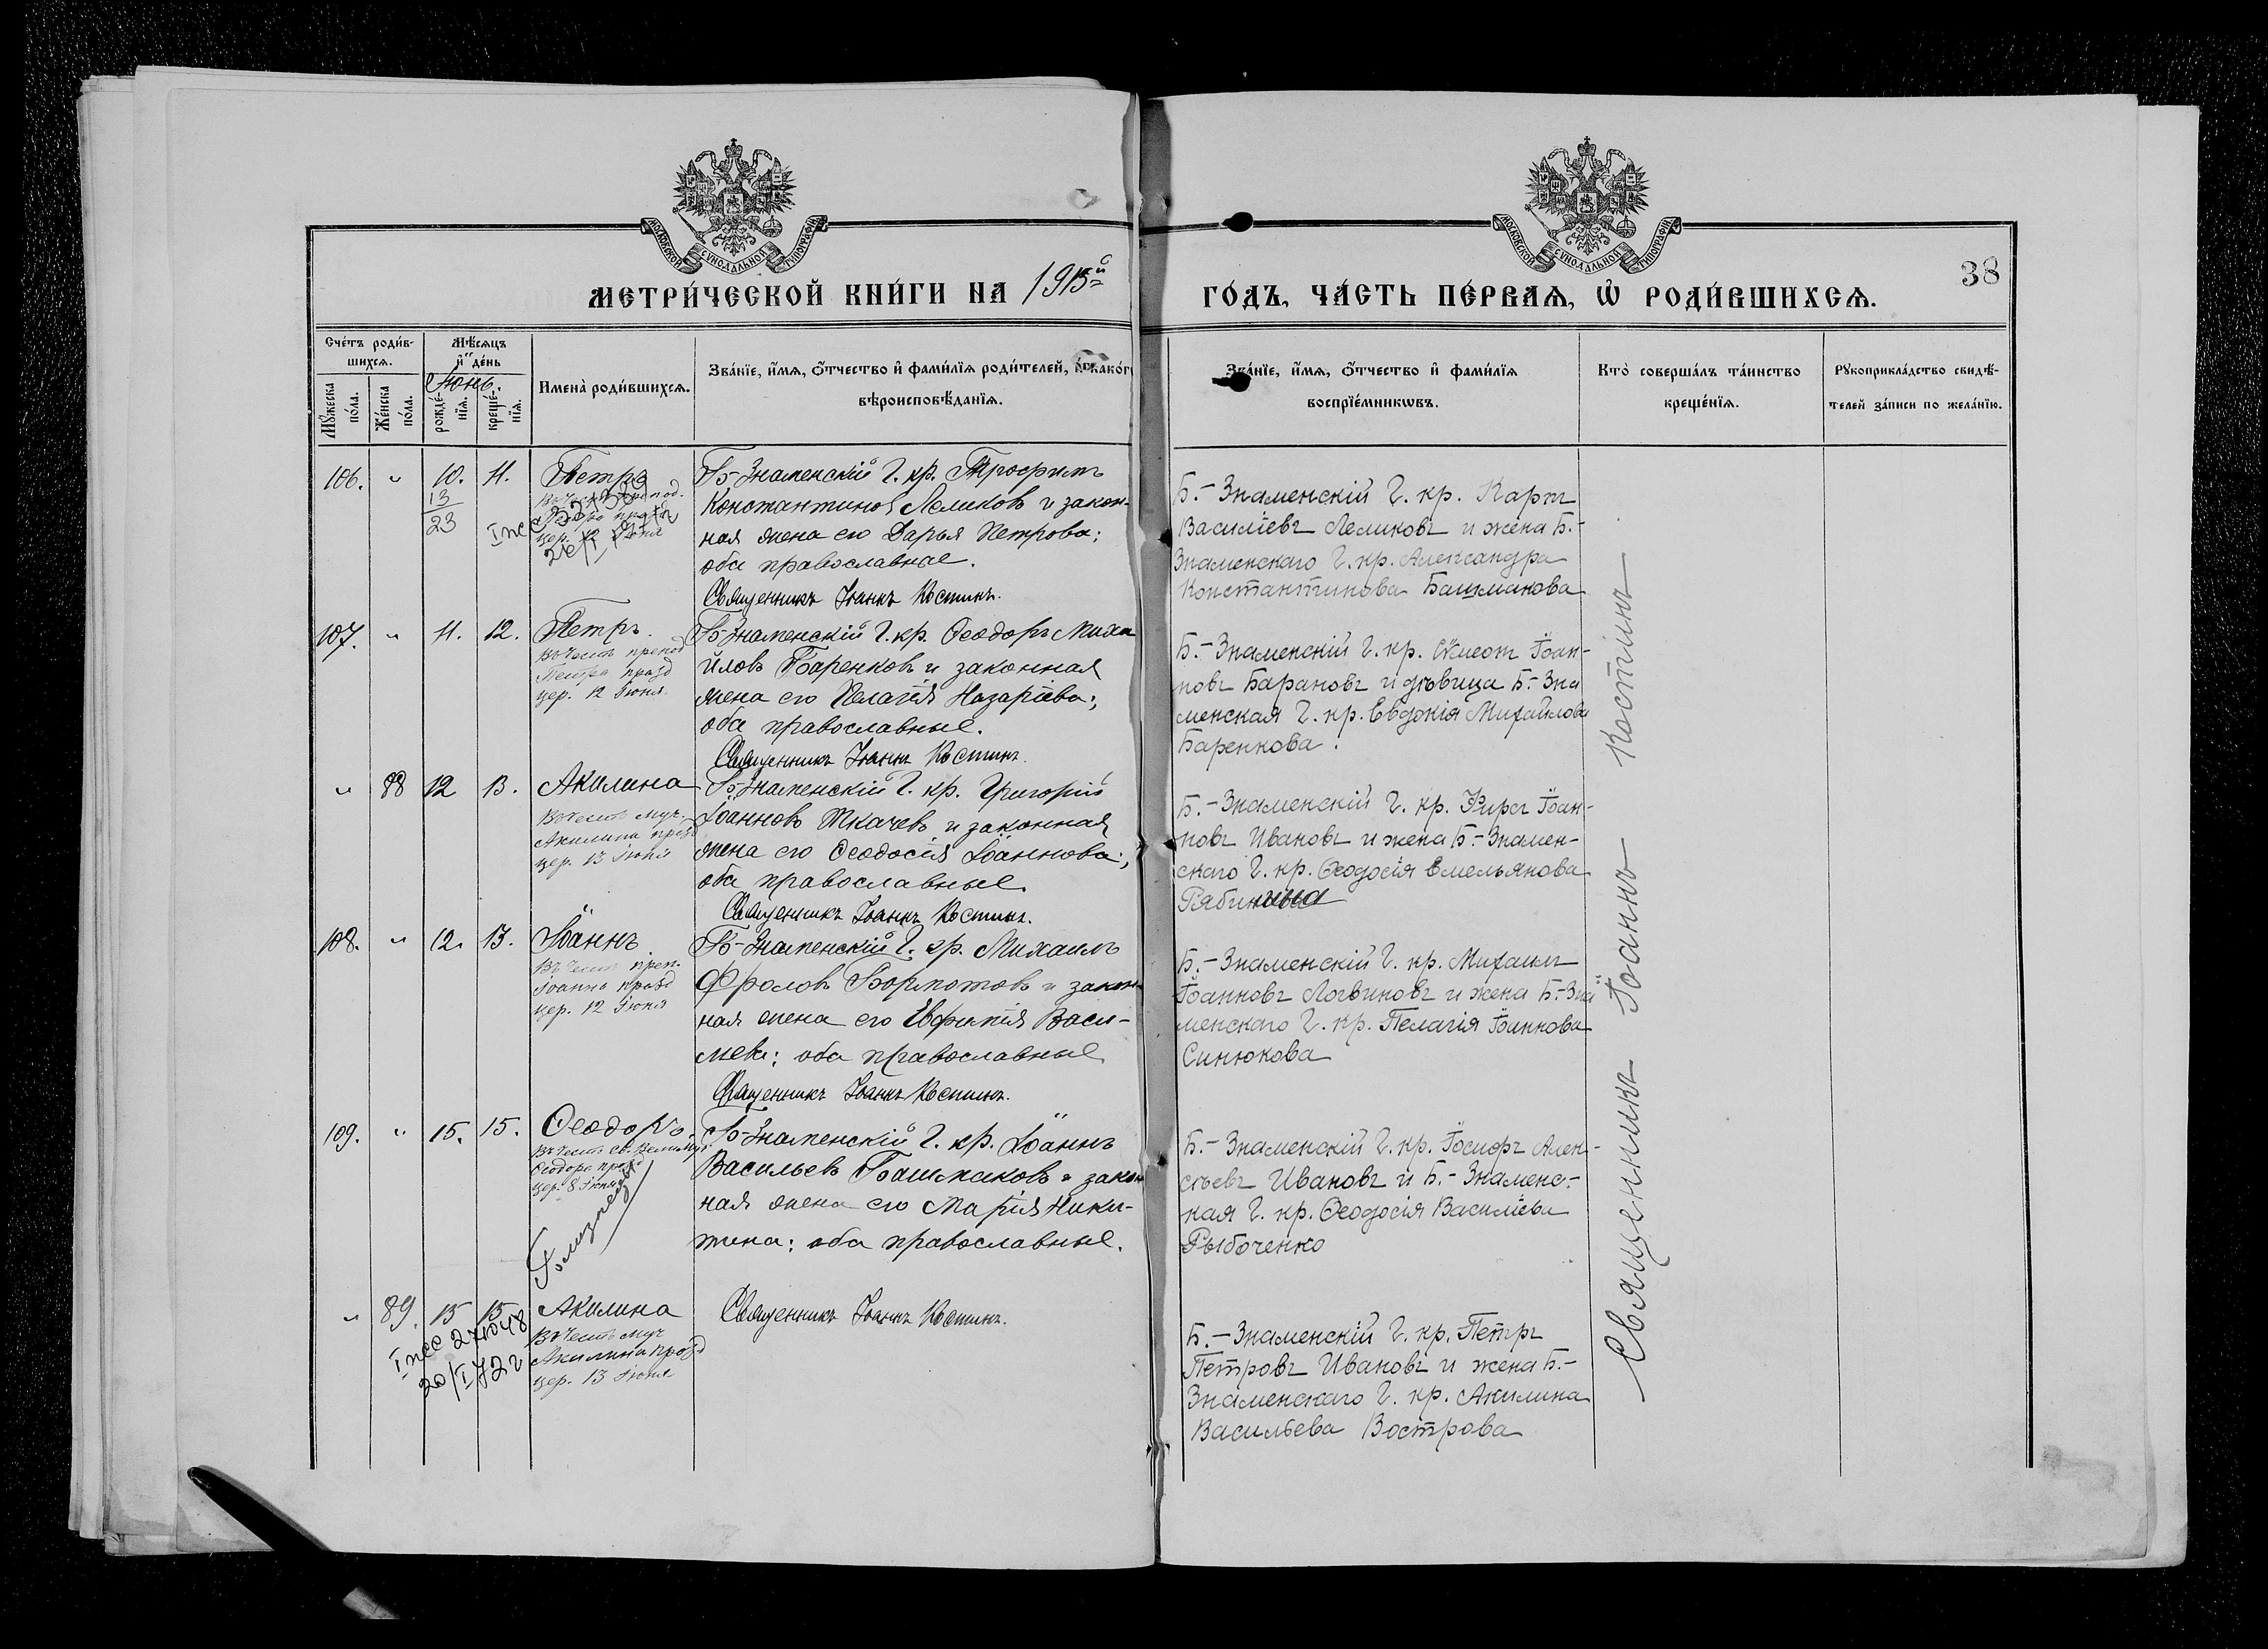 МОСКОВСКОЙ СУНОДАЛЬНОЙ ТИПОГРАФІИ
МОСКОВСКОЙ СУНОДАЛЬНОЙ ТИПОГРАФІИ
38
МЕТРИ́ЧЕСКОЙ КНИ́ГИ НА 1915й ГО́ДЪ, ЧА́СТЬ ПЕ́РВАѦ, Ѡ҆ РОДИ́ВШИХСѦ.
Сче́тъ роди́в-
шихсѧ.
Мѣ́сѧцъ
и҆ де́нь
Іюнь.
Мꙋ́жеска по́ла.
Же́нска по́ла.
рожде́-нїѧ.
креще́-нїѧ.
Имена̀ роди́вшихсѧ.
Зва́нїе, и҆́мѧ, ѻ҆́тчество и҆ фами́лїѧ роди́телей, и҆ како́гѡ
вѣроисповѣ́данїѧ.
Зва́нїе, и҆́мѧ, ѻ҆́тчество и҆ фами́лїѧ
воспрїе́мникѡвъ.
Кто̀ соверша́лъ та́инство
креще́нїѧ.
Рꙋкоприкла́дство свидѣ́-
телей за́писи по жела́нїю.
106. " 10. 11. Петръ
13
23
цер. 12 Іюня
Б-Знаменскій Г. кр. Трофимъ
Константиновъ Лемиковъ и закон-
ная жена его Дарья Петрова;
оба православные.
Священникъ Іоаннъ Костинъ.
Б.-Знаменскій Г. кр. Карпъ
Василіевъ Лемиковъ и жена Б.-
Знаменскаго Г. кр. Александра
Константинова Башмакова
107. " 11. 12. Петръ.
Въ честь препод
Петра празд
цер. 12 Іюня.
Б-Знаменскій Г. кр. Ѳеодоръ Миха
йловъ Баренковъ и законная
жена его Пелагія Назаріева;
оба православные.
Священникъ Іоаннъ Костинъ.
Б.-Знаменскій Г. кр. Сѵмеонъ Іоан-
новъ Барановъ и дѣвица Б.-Зна
менская Г. кр. Евдокія Михайлова
Баренкова.
" 88 12 13. Акилина
Въ честь муч.
Акилины празд
цер. 13 Іюня
Б-Знаменскій Г. кр. Григорій
Іоанновъ Ткачевъ и законная
жена его Ѳеодосія Іоаннова;
оба православные
Священникъ Іоаннъ Костинъ.
Б.-Знаменскій Г. кр. Ѳирсъ Іоан-
новъ Ивановъ и жена Б.-Знамен-
скаго Г. кр. Ѳеодосія Емельянова
108. " 12. 13. Іоаннъ
Въ честь преп.
Іоанна празд
цер. 12 Іюня
Б-Знаменскій Г. кр. Михаилъ
Фроловъ Бормотовъ и закон-
ная жена его Евфимія Васи-
льева; оба православные
Священникъ Іоаннъ Костинъ.
Б.-Знаменскій Г. кр. Михаилъ
Іоанновъ Логвиновъ и жена Б.-Зна
менскаго Г. кр. Пелагія Іоаннова
Синюкова
109. " 15. 15. Ѳеодоръ.
Въ честь св. Великомуч.
Ѳеодора празд
цер. 8 Іюня
Близнецы
Б-Знаменскій Г. кр. Іоаннъ
Васильевъ Башмаковъ и закон
ная жена его Марія Ники-
тина; оба православные.
Б.-Знаменскій Г. кр. Іосифъ Алек-
сѣевъ Ивановъ и Б.-Знаменс-
кая Г. кр. Ѳеодосія Василіева
Рыбоченко
" 89. 15 15 Акилина
Въ честь муч
Акилины празд
цер. 13 Іюня
Священникъ Іоаннъ Костинъ.
Б.-Знаменскій Г. кр. Петръ
Петровъ Ивановъ и жена Б.-
Знаменскаго Г. кр. Акилина
Васильева Вострова
Священникъ Іоаннъ Костинъ